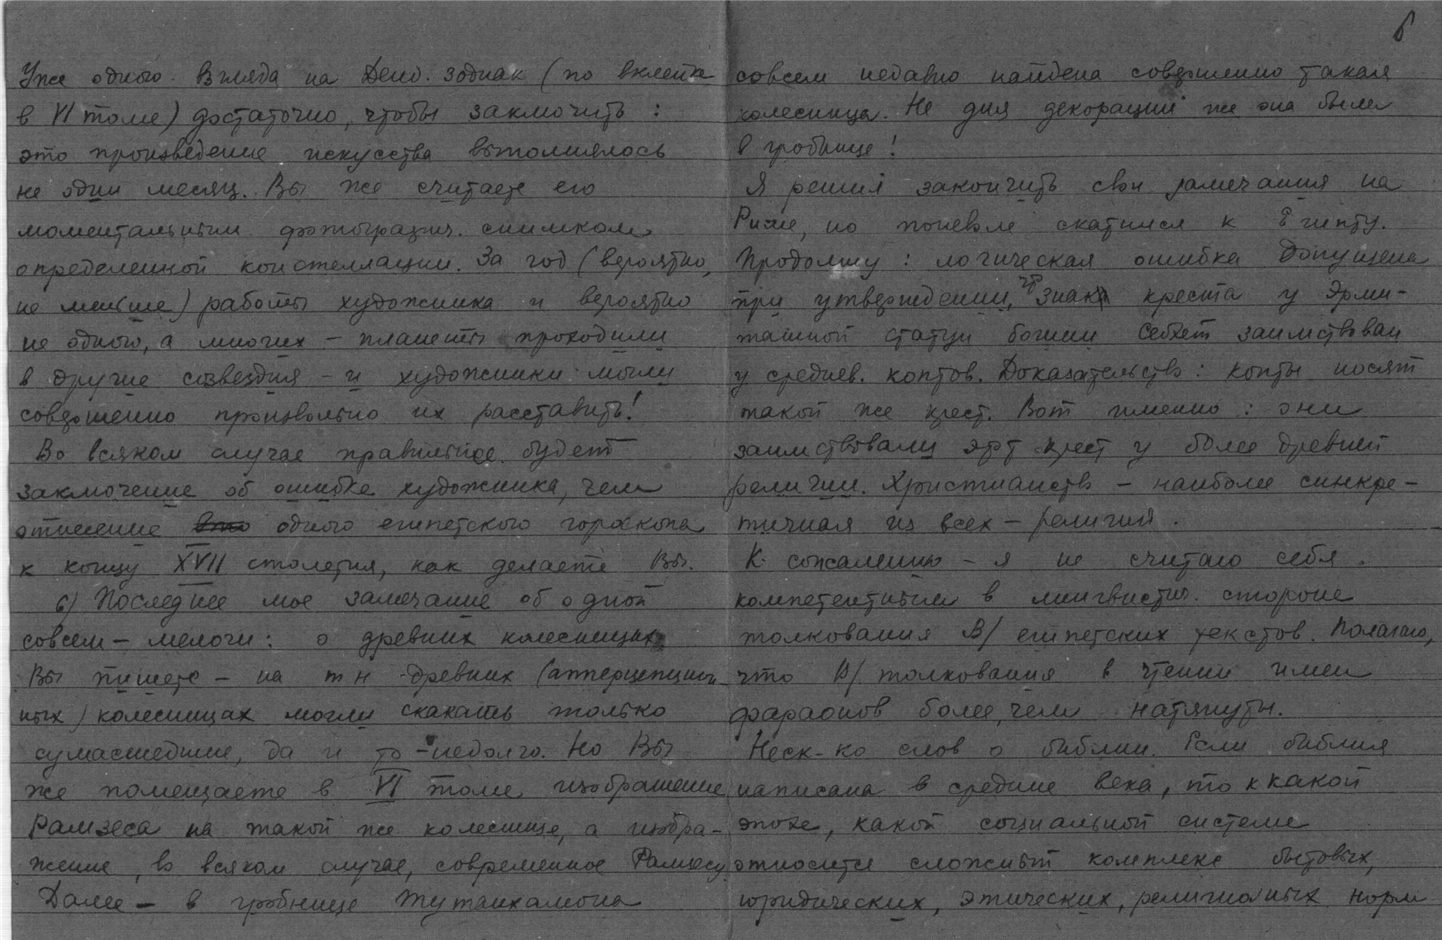 Уже одного взгляда на Денд. зодиак (по вклейке
в VI томе) достаточно, чтобы заключить:
это произведение искусства выполнялось
не один месяц. Вы же считаете его
моментальным фотографич. снимком
определенной констелляции. За год (вероятно,
не меньше) работы художника и вероятно
не одного, а многих – планеты проходили
в другие созвездия – и художники могли
совершенно произвольно их расставить!
Во всяком случае правильнее будет
заключение об ошибке художника, чем
отнесение одного египетского гороскопа
к концу XVII столетия, как делаете Вы.
6) Последнее мое замечание об одной
совсем – мелочи: о древних колесницах
Вы пишете – на т н древних (апперцепцион-
ных) колесницах могли скакать только
сумасшедшие, да и то – недолго. Но Вы
же помещаете в VI томе изображение
Рамзеса на такой же колеснице, а изобра-
жение, во всяком случае, современное Рамзесу.
Далее – в гробнице Тутанхамона
6
совсем недавно найдена совершенно такая
колесница. Не для декораций же она была
в гробнице!
Я решил закончить свои замечания на
Риме, но поневоле скатился к Египту.
Продолжу: логическая ошибка допущена
при утверждении, что знак креста у Эрми-
тажной статуи богини Сехет заимствован
у среднев. коптов. Доказательство: копты носят
такой же крест. Вот именно: они
заимствовали этот крест у более древней
религии. Христианство – наиболее синкре-
тичная из всех – религий.
К сожалению – я не считаю себя
компетентным в лингвистич. стороне
толкования В/ египетских текстов. Полагаю,
что В/ толкования в чтении имен
фараонов более, чем натянуты.
Неск-ко слов о библии. Если библия
написана в средние века, то к какой
эпохе, какой социальной системе
относится сложный комплекс бытовых,
юридических, этических, религиозных норм